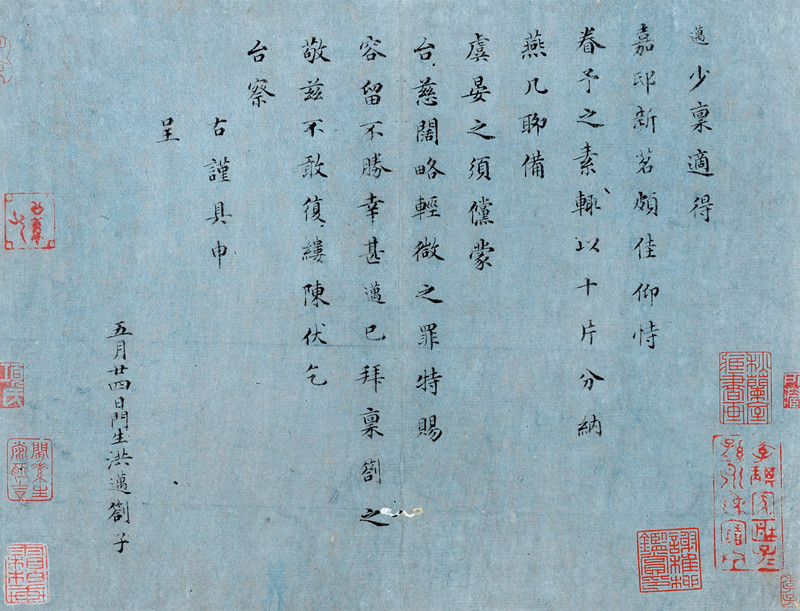 邁少稟適得
嘉邸新茗頗佳仰恃
眷予之素輒以十片分納
燕几聊備
虞晏之須儻蒙
台慈闊略輕微之罪特賜
容留不勝幸甚邁已拜稟劄之
敬茲不敢復縷陳伏乞
台察
右謹具申
呈
五月廿四日門生洪邁劄子